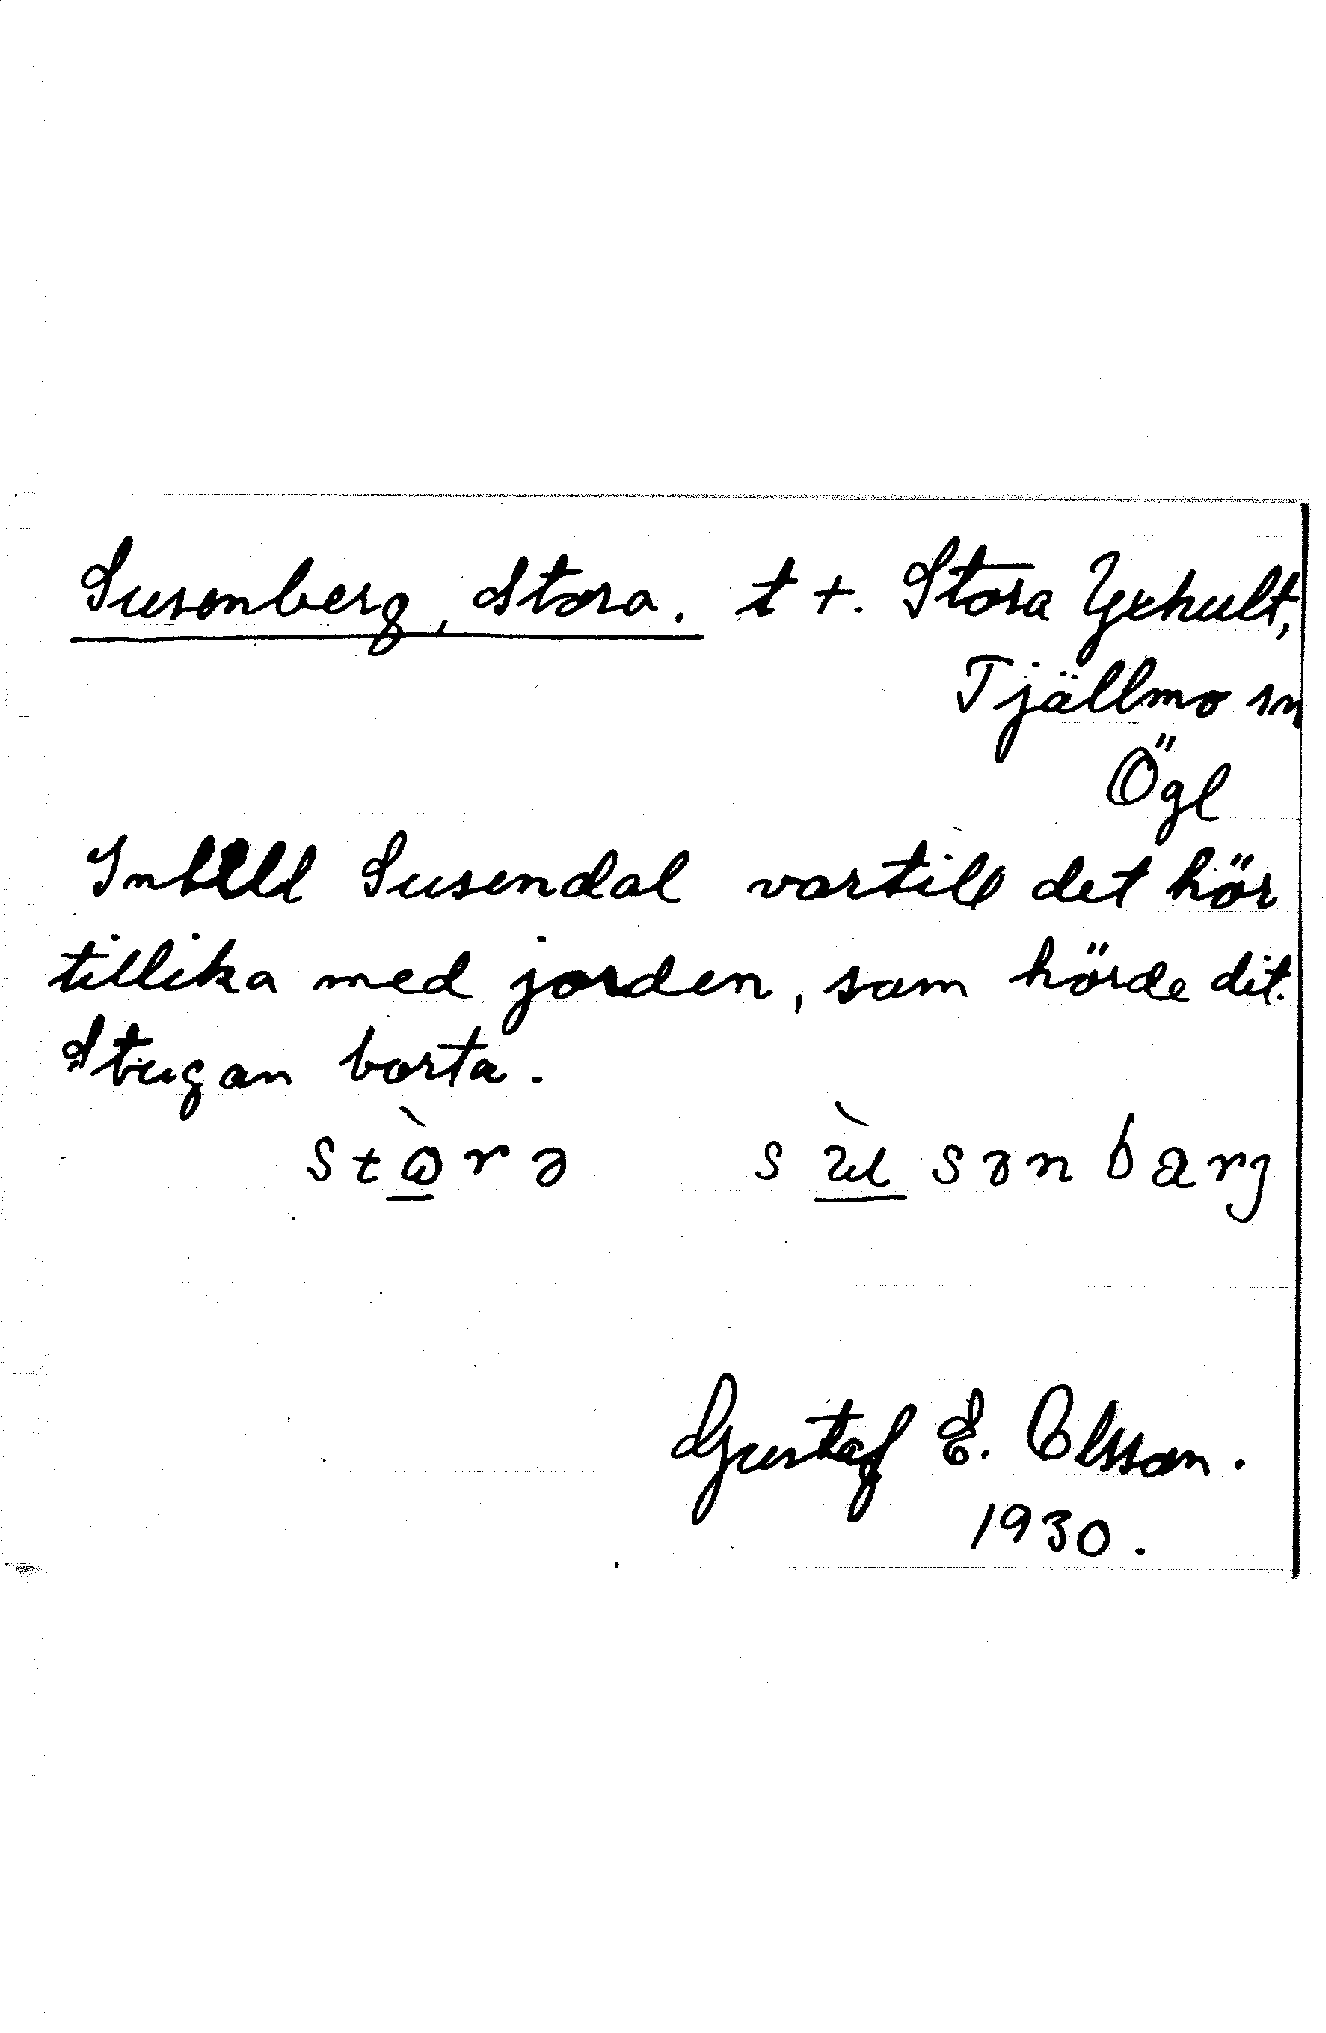 Susenberg, Stora. t +. Stora Yxhult,
Tjällmo sn
Ögl
Intill Susendal vartill det hör
tillika med jorden, som hörde dit.
Stugan borta.
Gustaf E. Olsson.
1930.